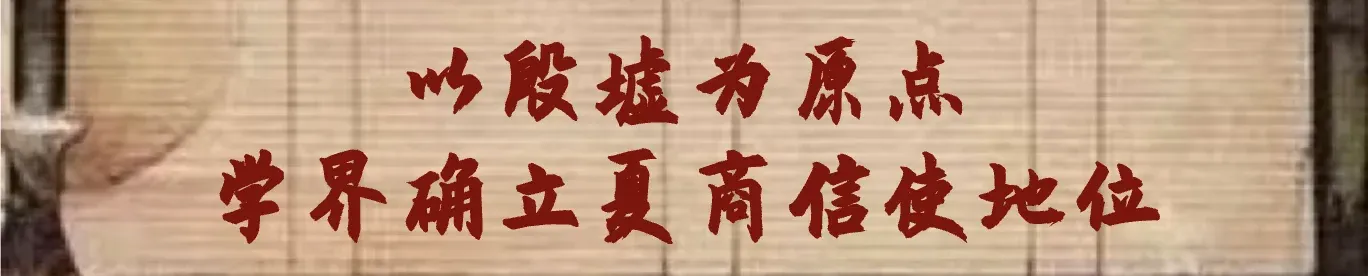 以殷墟为原点
学界确立夏商信使地位